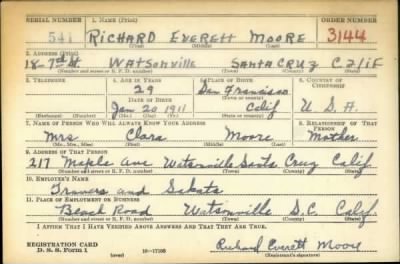 SERIAL NUMBER 1. NAME (Print) ORDER NUMBER
541 RICHARD EVERETT MOORE 3144
(First) (Middle) (Last)
2. ADDRESS (Print)
18-7th St. WATSONVILLE SANTA CRUZ CALIF
(Number and street or R. F. D. number) (Town) (County) (State)
3. TELEPHONE 4. AGE IN YEARS 5. PLACE OF BIRTH 6. COUNTRY OF CITIZENSHIP
29 San Francisco
DATE OF BIRTH (Town or county)
Jan 20 1911 Calif U.S.A.
(Exchange) (No.) (Mo.) (Day) (Yr.) (State or country)
7. NAME OF PERSON WHO WILL ALWAYS KNOW YOUR ADDRESS 8. RELATIONSHIP OF THAT PERSON
Mrs Clara Moore Mother
(Mr., Mrs., Miss) (First) (Middle) (Last)
9. ADDRESS OF THAT PERSON
217 Maple Ave Watsonville Santa Cruz Calif.
(Number and street or R. F. D. number) (Town) (County) (State)
10. EMPLOYER'S NAME
Travers and Sakata
11. PLACE OF EMPLOYMENT OR BUSINESS
Beach Road Watsonville S.C. Calif.
(Number and street or R. F. D. number) (Town) (County) (State)
I AFFIRM THAT I HAVE VERIFIED ABOVE ANSWERS AND THAT THEY ARE TRUE.
REGISTRATION CARD
D. S. S. Form 1 (over) 16-17105 Richard Everett Moore
(Registrant's signature)